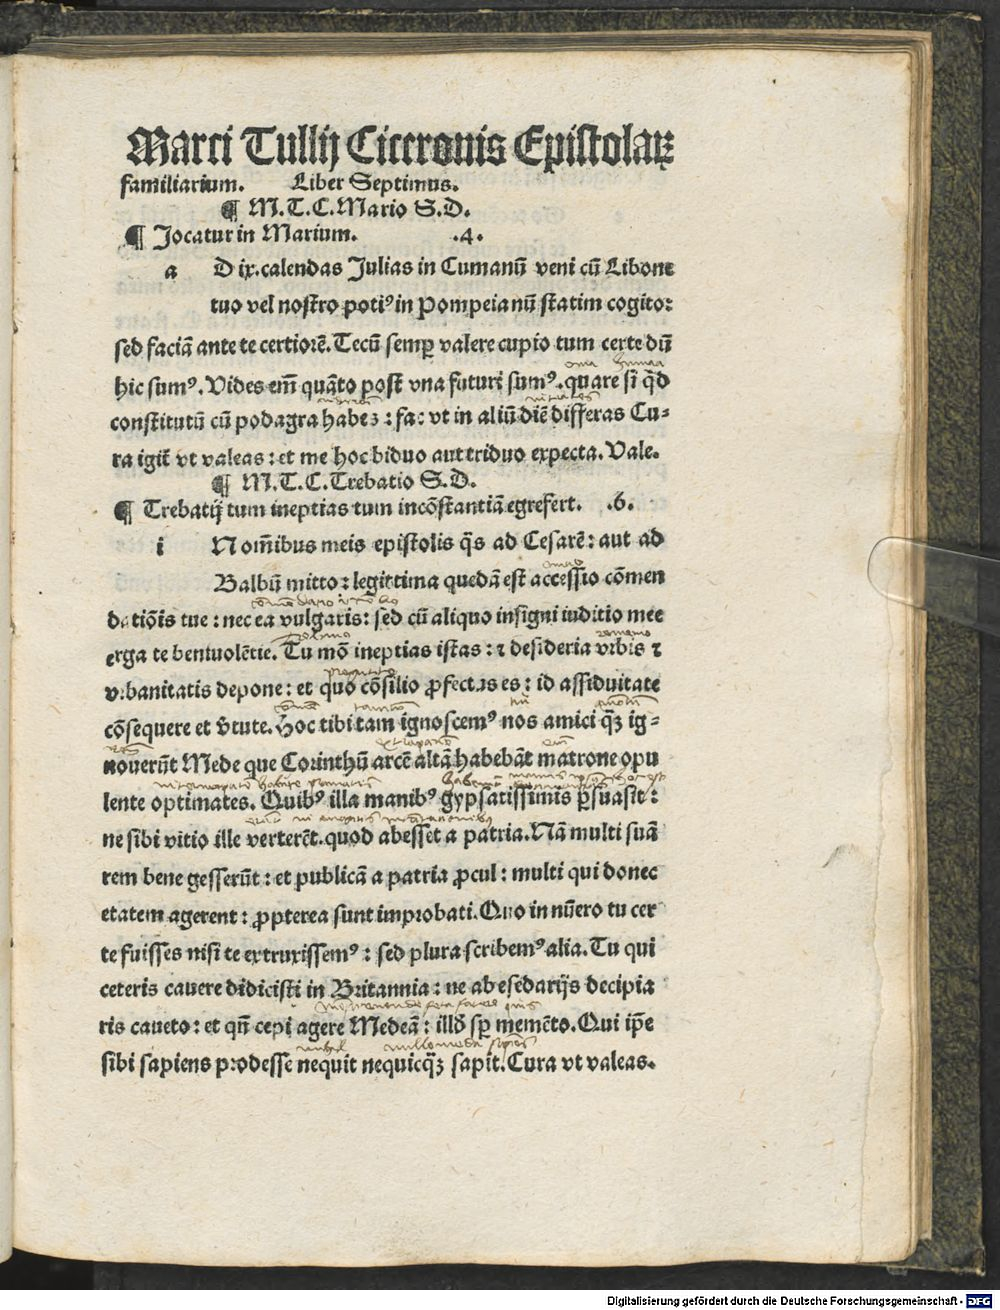 Marci Tullij Ciceronis Epistolaꝝ
familiarium. Liber Septimus.
¶ M.T.C. Mario S.D.
¶ Jocatur in Marium. .4.
a D ix. calendas Julias in Cumanū veni cū Libone
tuo vel nostro potiꝰ in Pompeianū statim cogito:
sed faciā ante te certiorē. Tecū semꝑ valere cupio tum certe dū
hic sumꝰ. Vides em̄ quāto post vna futuri sumꝰ. quare si qd̄
constitutū cū podagra habes: fac vt in aliū diē differas Cu-
ra igit̄ vt valeas: et me hoc biduo aut triduo expecta. Vale.
¶ M.T.C. Trebatio S.D.
¶ Trebatij tum ineptias tum incōstantiā egrefert. .6.
i N om̄ibus meis epistolis q̄s ad Cesarē: aut ad
Balbū mitto: legittima quedā est accessio cōmen
datiōis tue: nec ea vulgaris: sed cū aliquo insigni iuditio mee
erga te beniuolētie. Tu mō ineptias istas: ⁊ desideria vrbis ⁊
vrbanitatis depone: et quo cōsilio ꝓfectus es: id assiduitate
cōsequere et v̄tute. Hoc tibi tam ignoscemꝰ nos amici qꝫ ig-
nouerūt Mede que Corinthū arcē altā habebāt matrone opu
lente optimates. Quibꝰ illa manibꝰ gypsatissimis p̄suasit:
ne sibi vitio ille verterēt. quod abesset a patria. Nā multi suā
rem bene gesserūt: et publicā a patria ꝓcul: multi qui donec
etatem agerent: ꝓpterea sunt improbati. Quo in nūero tu cer
te fuisses nisi te extruxissemꝰ: sed plura scribemꝰ alia. Tu qui
ceteris cauere didicisti in Britannia: ne ab esedarijs decipia
ris caueto: et qn̄ cepi agere Medeā: illd̄ sp̄ memēto. Qui ip̄e
sibi sapiens prodesse nequit nequicqꝫ sapit. Cura vt valeas.
Digitalisierung gefördert durch die Deutsche Forschungsgemeinschaft - DFG